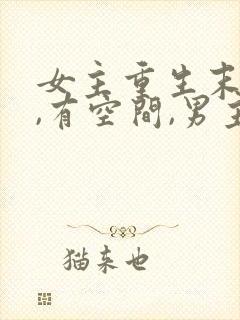 女主重生末
,有空间,男主
猫来也